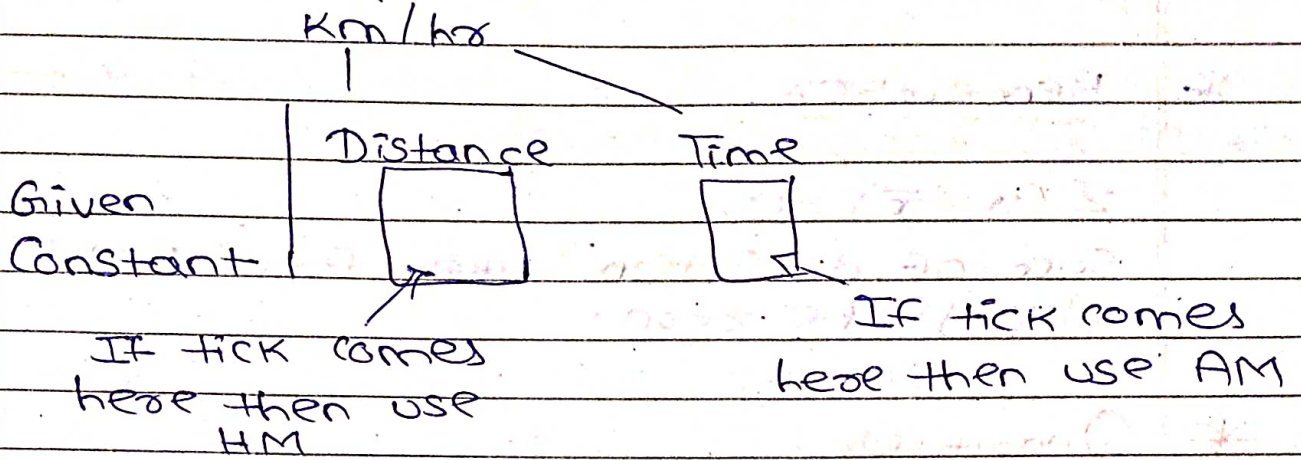 Km/hr
Distance Time
Given
Constant
If tick comes
here then use
HM
If tick comes
here then use AM